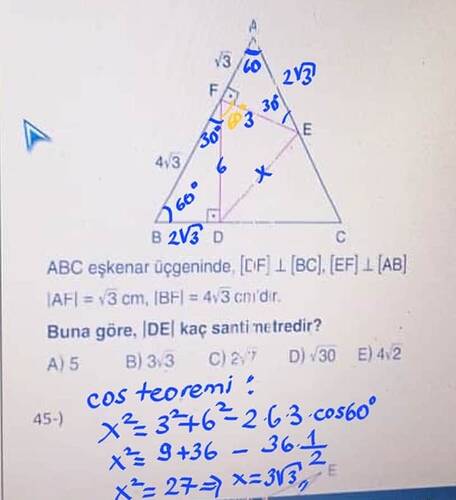 A
√3
60
2√3
F
30°
60
3
30°
E
4√3
6
x
60°
B
2√3
D
C
ABC eşkenar üçgeninde, [DF] ⊥ [BC], [EF] ⊥ [AB]
|AF| = √3 cm, |BF| = 4√3 cm'dir.
Buna göre, |DE| kaç santimetredir?
A) 5 B) 3√3 C) 2√7 D) √30 E) 4√2
cos teoremi :
45-)
x² = 3² + 6² - 2·6·3·cos60°
x² = 9 + 36 - 36·1/2
x² = 27 ⇒ x = 3√3 //
E